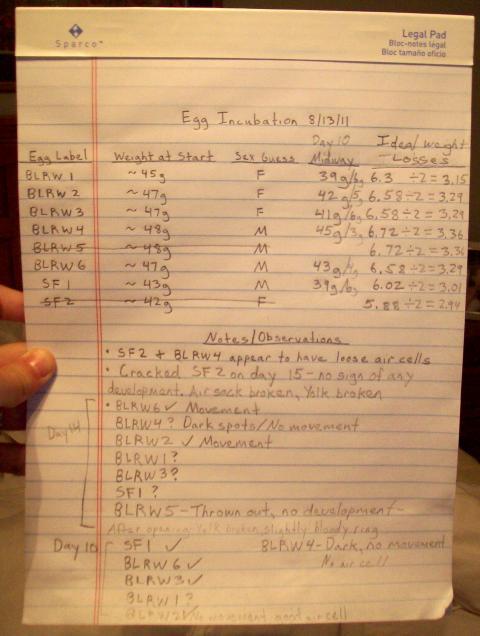 Sparco™
Legal Pad
Bloc-notes légal
Bloc tamaño oficio
Egg Incubation 8/13/11
Day 10 Ideal weight
Egg Label Weight at Start Sex Guess Midway Losses
BLRW 1 ~ 45g F 39g/6g 6.3 ÷2 = 3.15
BLRW 2 ~ 47g F 42g/5g 6.58÷2 = 3.29
BLRW 3 ~ 47g F 41g/6g 6.58÷2 = 3.29
BLRW 4 ~ 48g M 45g/3g 6.72÷2 = 3.36
BLRW 5 ~ 48g M 6.72÷2 = 3.36
BLRW 6 ~ 47g M 43g/4g 6.58÷2 = 3.29
SF 1 ~ 43g M 39g 6.02÷2 = 3.01
SF2 ~ 42g F 5.88÷2 = 2.94
Notes/Observations
• SF2 + BLRW4 appear to have loose air cells
• Cracked SF2 on day 15 - no sign of any
development. Air sack broken, Yolk broken
• BLRW6 ✓ Movement
Day 14 BLRW4? Dark spots/No movement
BLRW2 ✓ Movement
BLRW1?
BLRW3?
SF1 ?
BLRW5 - Thrown out, no development -
After opening: Yolk broken, slightly bloody ring
Day SF1 ✓ BLRW4 - Dark, no movement
BLRW6 ✓ No air cell
BLRW3 ✓
BLRW1 ?
BLRW2 ✓ No movement, good air cell